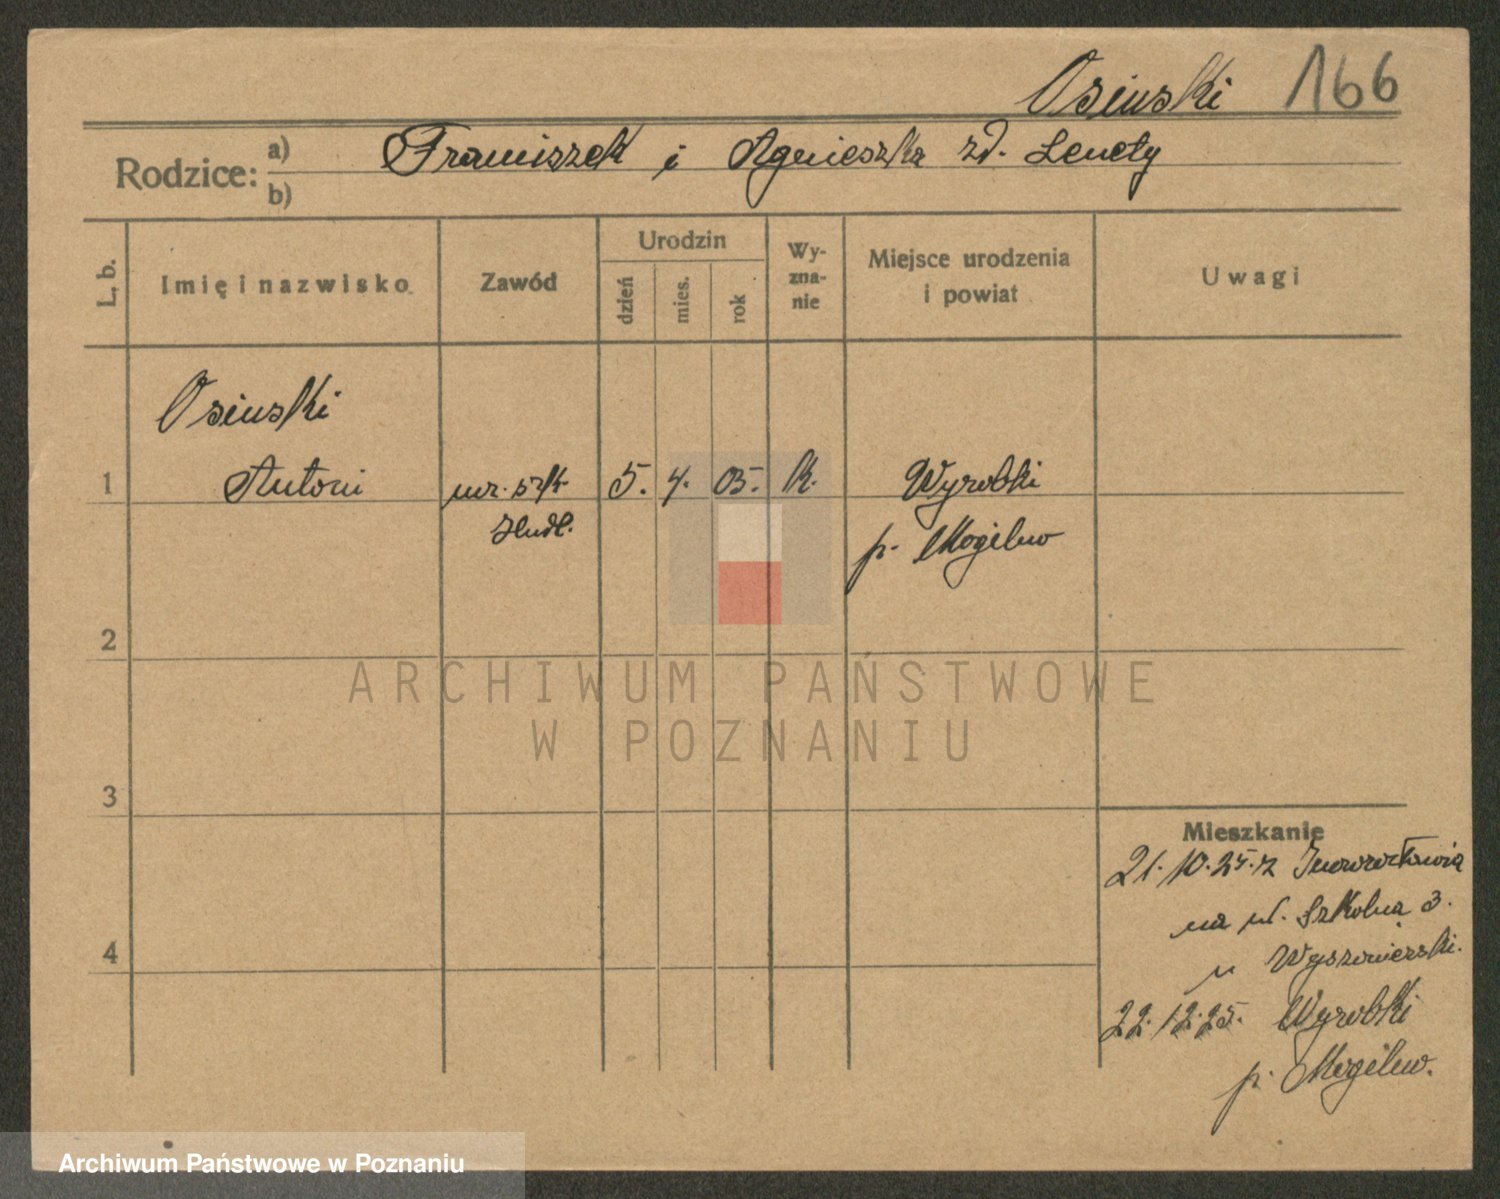 Osiński 166
Rodzice: a) Franciszek i Agnieszka zd. Lenety
b)
L. b. Imię i nazwisko Zawód Urodzin dzień mies. rok Wy-zna-nie Miejsce urodzenia i powiat Uwagi
Osiński
1 Antoni ucz. szk. 5. 4. 05. k. Wyrobki
Hndl. p. Mogilno
2
ARCHIWUM PAŃSTWOWE
W POZNANIU
3
Mieszkanie
21.10.25. z Inowrocławia
na ul. Szkolna 3.
4
u Wyszomierski.
22.12.25. Wyrobki
p. Mogilno.
Archiwum Państwowe w Poznaniu